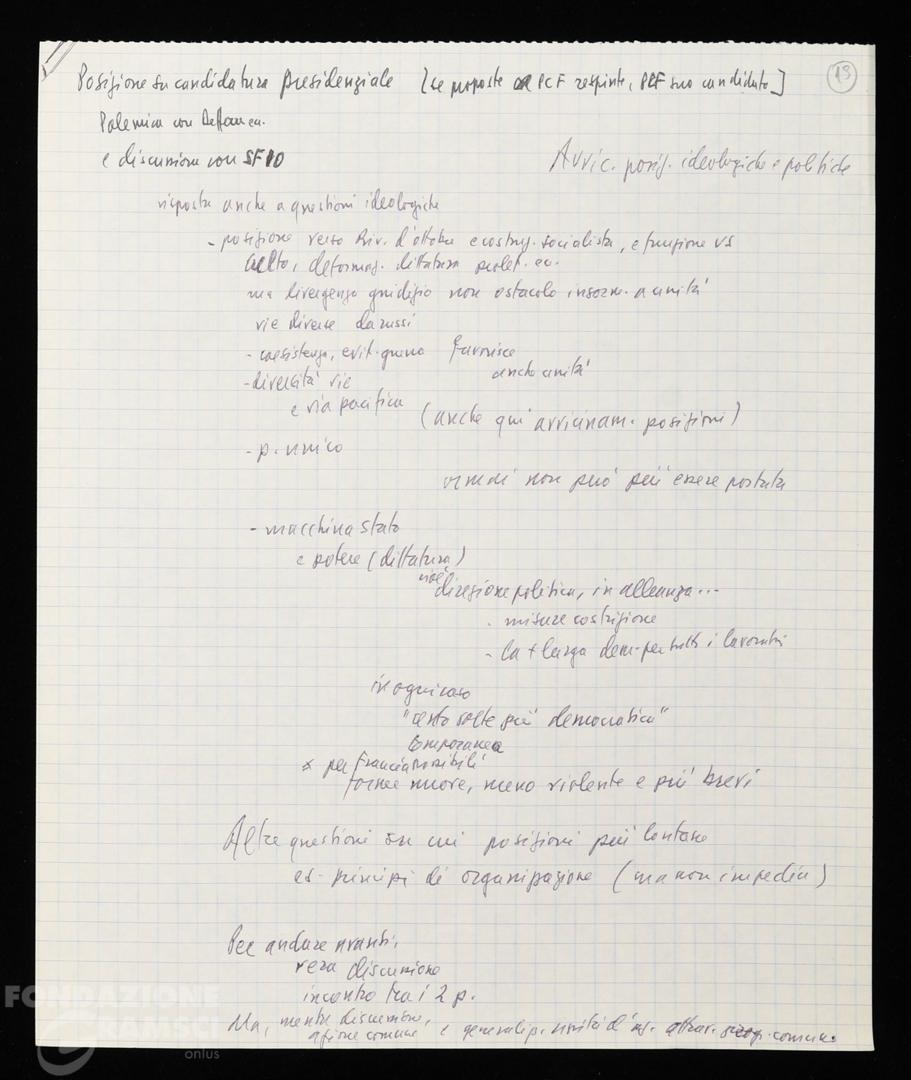 Posizione su candidatura presidenziale [se proposte PCF respinte, PCF suo candidato]
15
Polemica con Defferre.
e discussione con SFIO
Avvic. posiz. ideologiche e politiche
risposta anche a questioni ideologiche
- posizione verso Riv. d'ottobre e costruz. socialista, e funzione US
culto, deformaz. dittatura prolet. ecc.
ma divergenza giudizio non ostacolo insorm. a unità
vie diverse da russi
- coesistenza, evit. guerra favorisce
anche unità
- diversità vie
e via pacifica
(anche qui avvicinam. posizioni)
- p. unico
non può più essere portata
- macchina stato
e potere (dittatura)
cioè
direzione politica, in alleanza...
- misure costrizione
- la + larga dem. per tutti i lavoratori
in ogni caso
"cento volte più democratica"
temporanea
x per Francia possibili
forme nuove, meno violente e più brevi
Altre questioni su cui posizioni più lontane
es. principi di organizzazione (ma non impedia)
Per andare avanti,
vera discussione
incontro tra i 2 p.
Ma, mentre discussione,
azione comune e generalip. unità d'az. attrav. comune.
FONDAZIONE
GRAMSCI
onlus